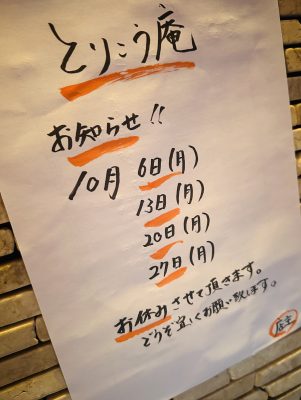 とりこう庵
お知らせ!!
10月 6日(月)
13日(月)
20日(月)
27日(月)
お休みさせて頂きます。
どうぞ宜しくお願い致します。
店主